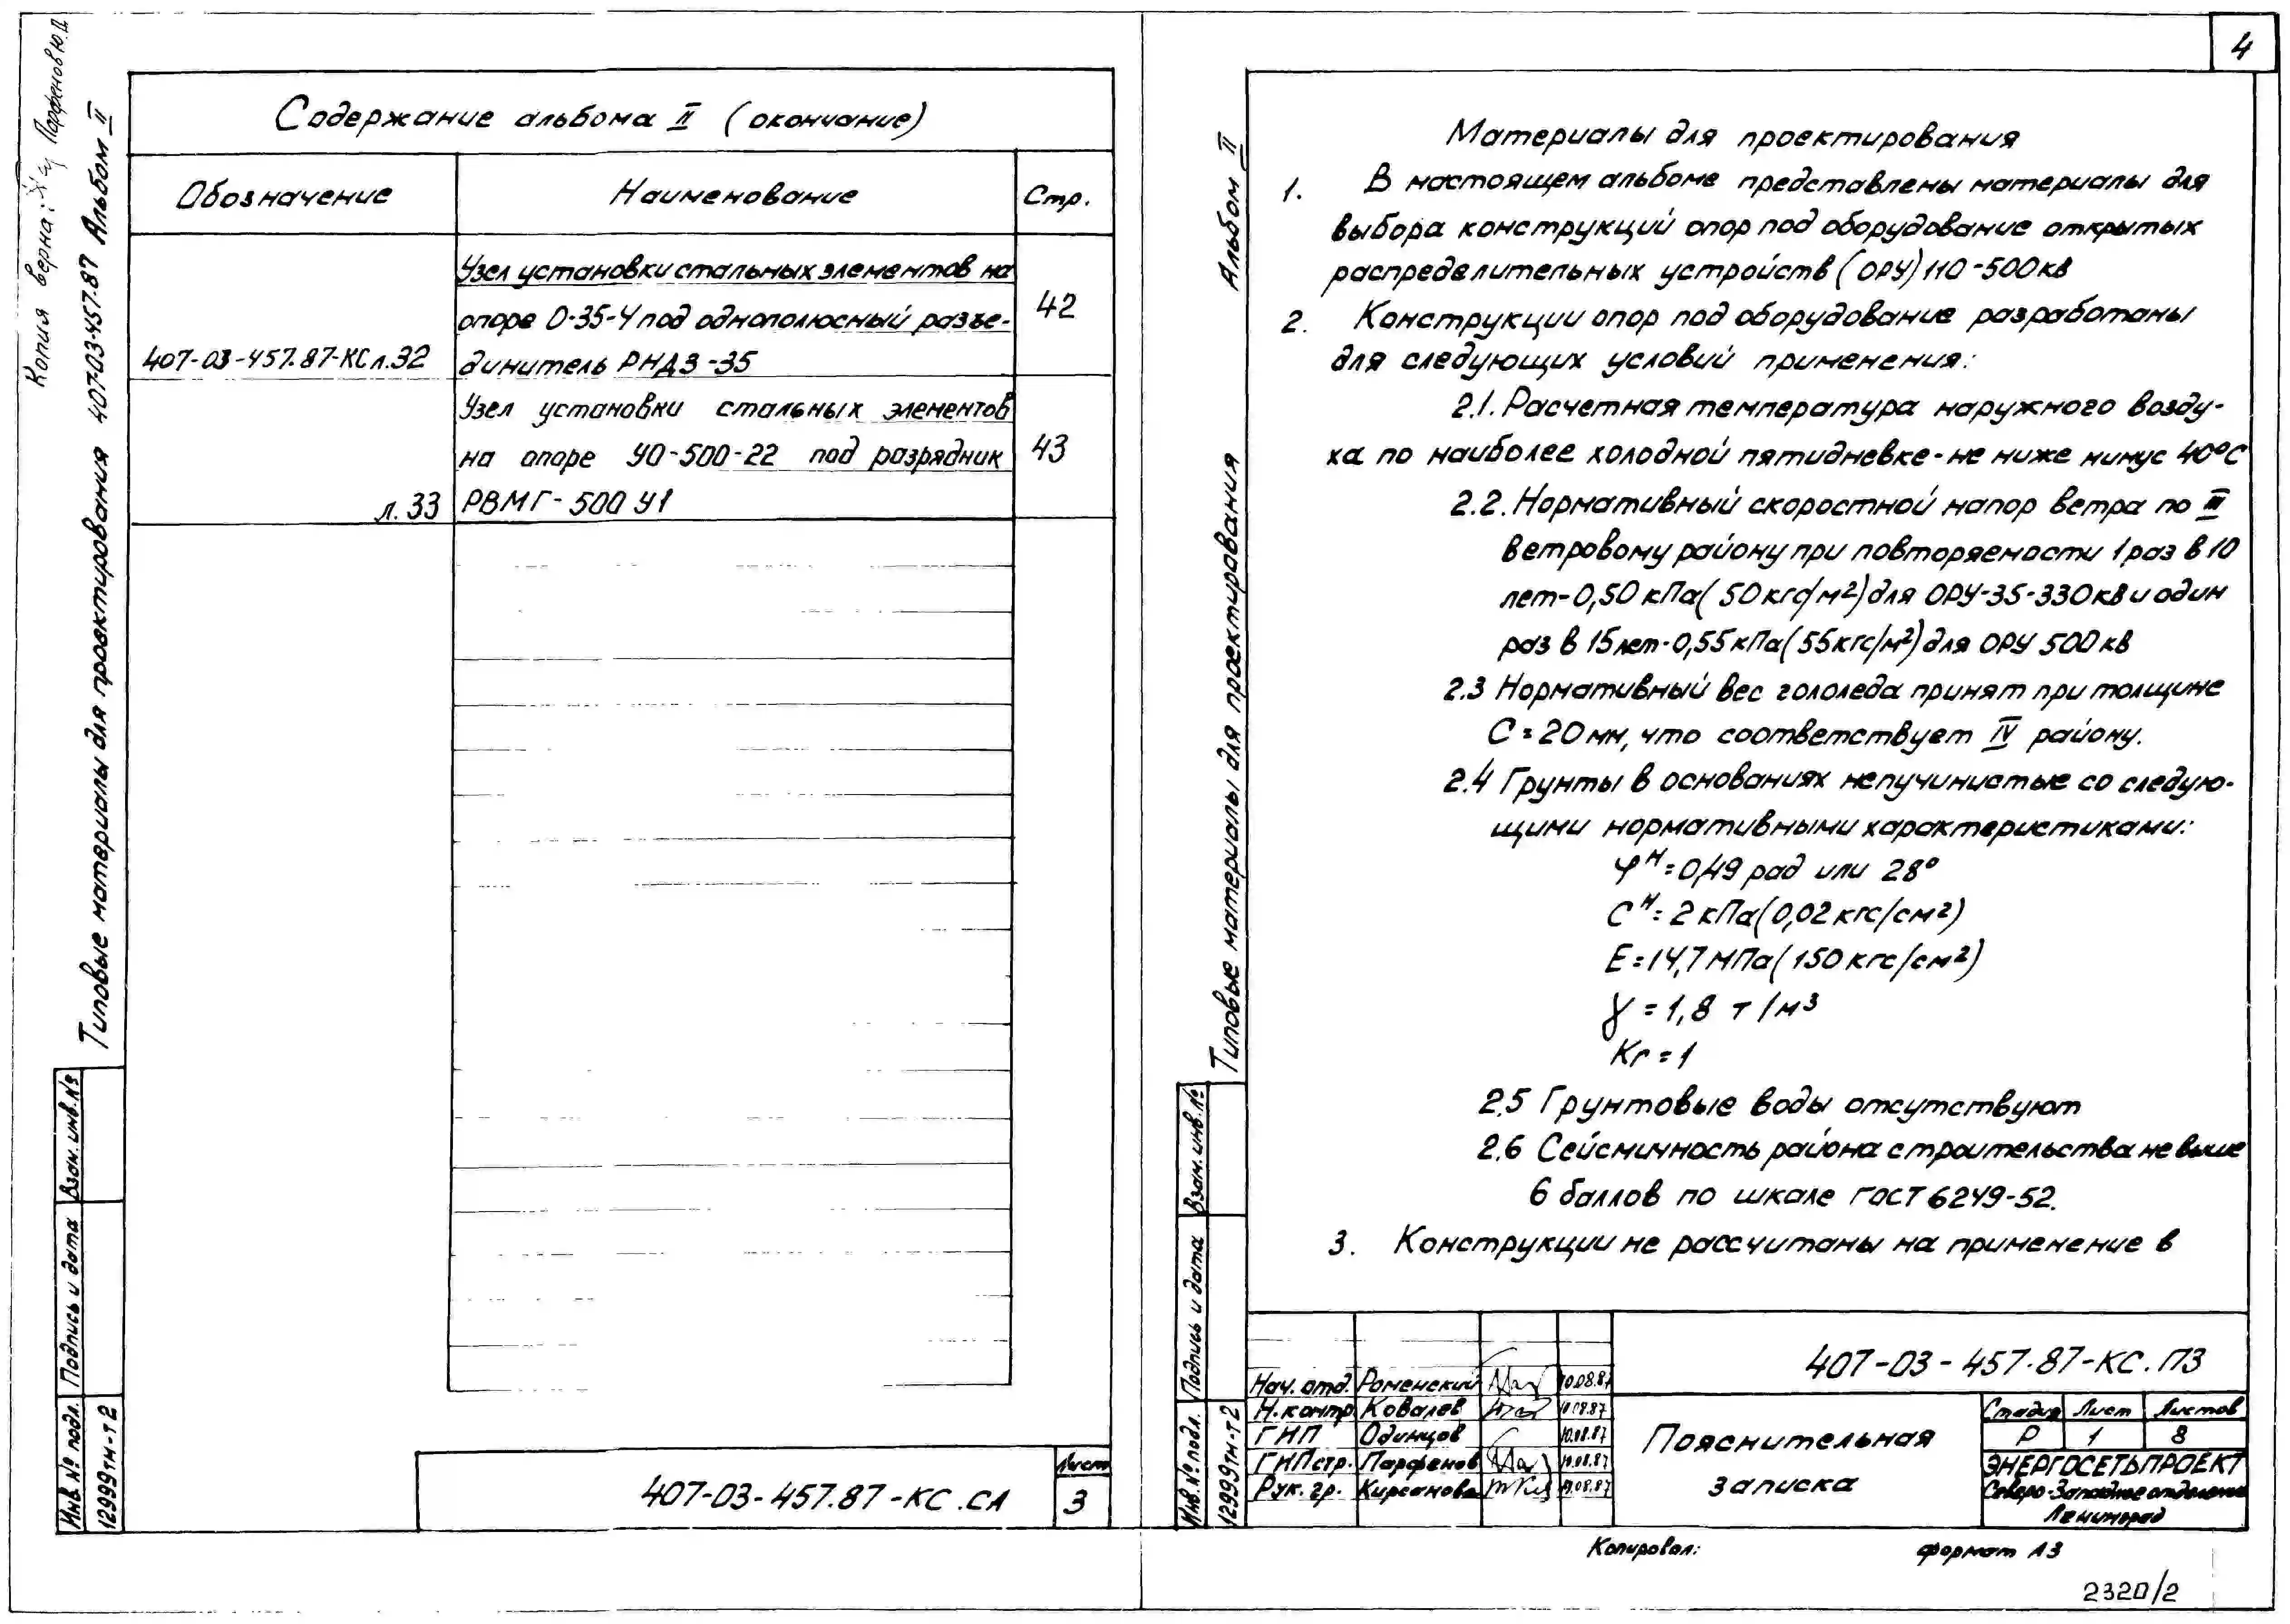 Копия верна: Парфенов Ю.Д.
Типовые материалы для проектирования 407-03-457.87 Альбом II
Содержание альбома II (окончание)
Обозначение Наименование Стр.
Узел установки стальных элементов на
опоре О-35-4 под однополюсный разъе-
407-03-457.87-КС л.32 динитель РНДЗ-35 42
Узел установки стальных элементов
на опоре УО-500-22 под разрядник 43
л.33 РВМГ-500 У1
Взам. инв. №
Подпись и дата
Инв. № подл.
12999тм-т2
407-03-457.87-КС.СЛ
Лист
3
4
Альбом II
Типовые материалы для проектирования
Материалы для проектирования
1. В настоящем альбоме представлены материалы для
выбора конструкций опор под оборудование открытых
распределительных устройств (ОРУ) 110-500кв
2. Конструкции опор под оборудование разработаны
для следующих условий применения:
2.1. Расчетная температура наружного возду-
ха по наиболее холодной пятидневке - не ниже минус 40°С
2.2. Нормативный скоростной напор ветра по III
ветровому району при повторяемости 1 раз в 10
лет - 0,50 кПа (50 кгс/м²) для ОРУ-35-330кв и один
раз в 15 лет - 0,55 кПа (55кгс/м²) для ОРУ 500кв
2.3 Нормативный вес гололеда принят при толщине
С = 20мм, что соответствует IV району.
2.4 Грунты в основаниях непучинистые со следую-
щими нормативными характеристиками:
φᴴ = 0,49 рад или 28°
Сᴴ = 2 кПа (0,02 кгс/см²)
Е = 14,7 МПа (150 кгс/см²)
γ = 1,8 т/м³
Кг = 1
2.5 Грунтовые воды отсутствуют
2.6 Сейсмичность района строительства не выше
6 баллов по шкале ГОСТ 6249-52.
3. Конструкции не рассчитаны на применение в
Взам. инв. №
Подпись и дата
Инв. № подл.
12999тм-т2
Нач. отд. Роменский 10.08.87
Н. контр. Ковалев 10.08.87
ГИП Одинцов 10.08.87
ГИПстр. Парфенов 10.08.87
Рук. гр. Кирсанова 10.08.87
407-03-457.87-КС.ПЗ
Пояснительная
записка
Стадия Лист Листов
Р 1 8
ЭНЕРГОСЕТЬПРОЕКТ
Северо-Западное отделение
Ленинград
Копировал: формат А3
2320/2